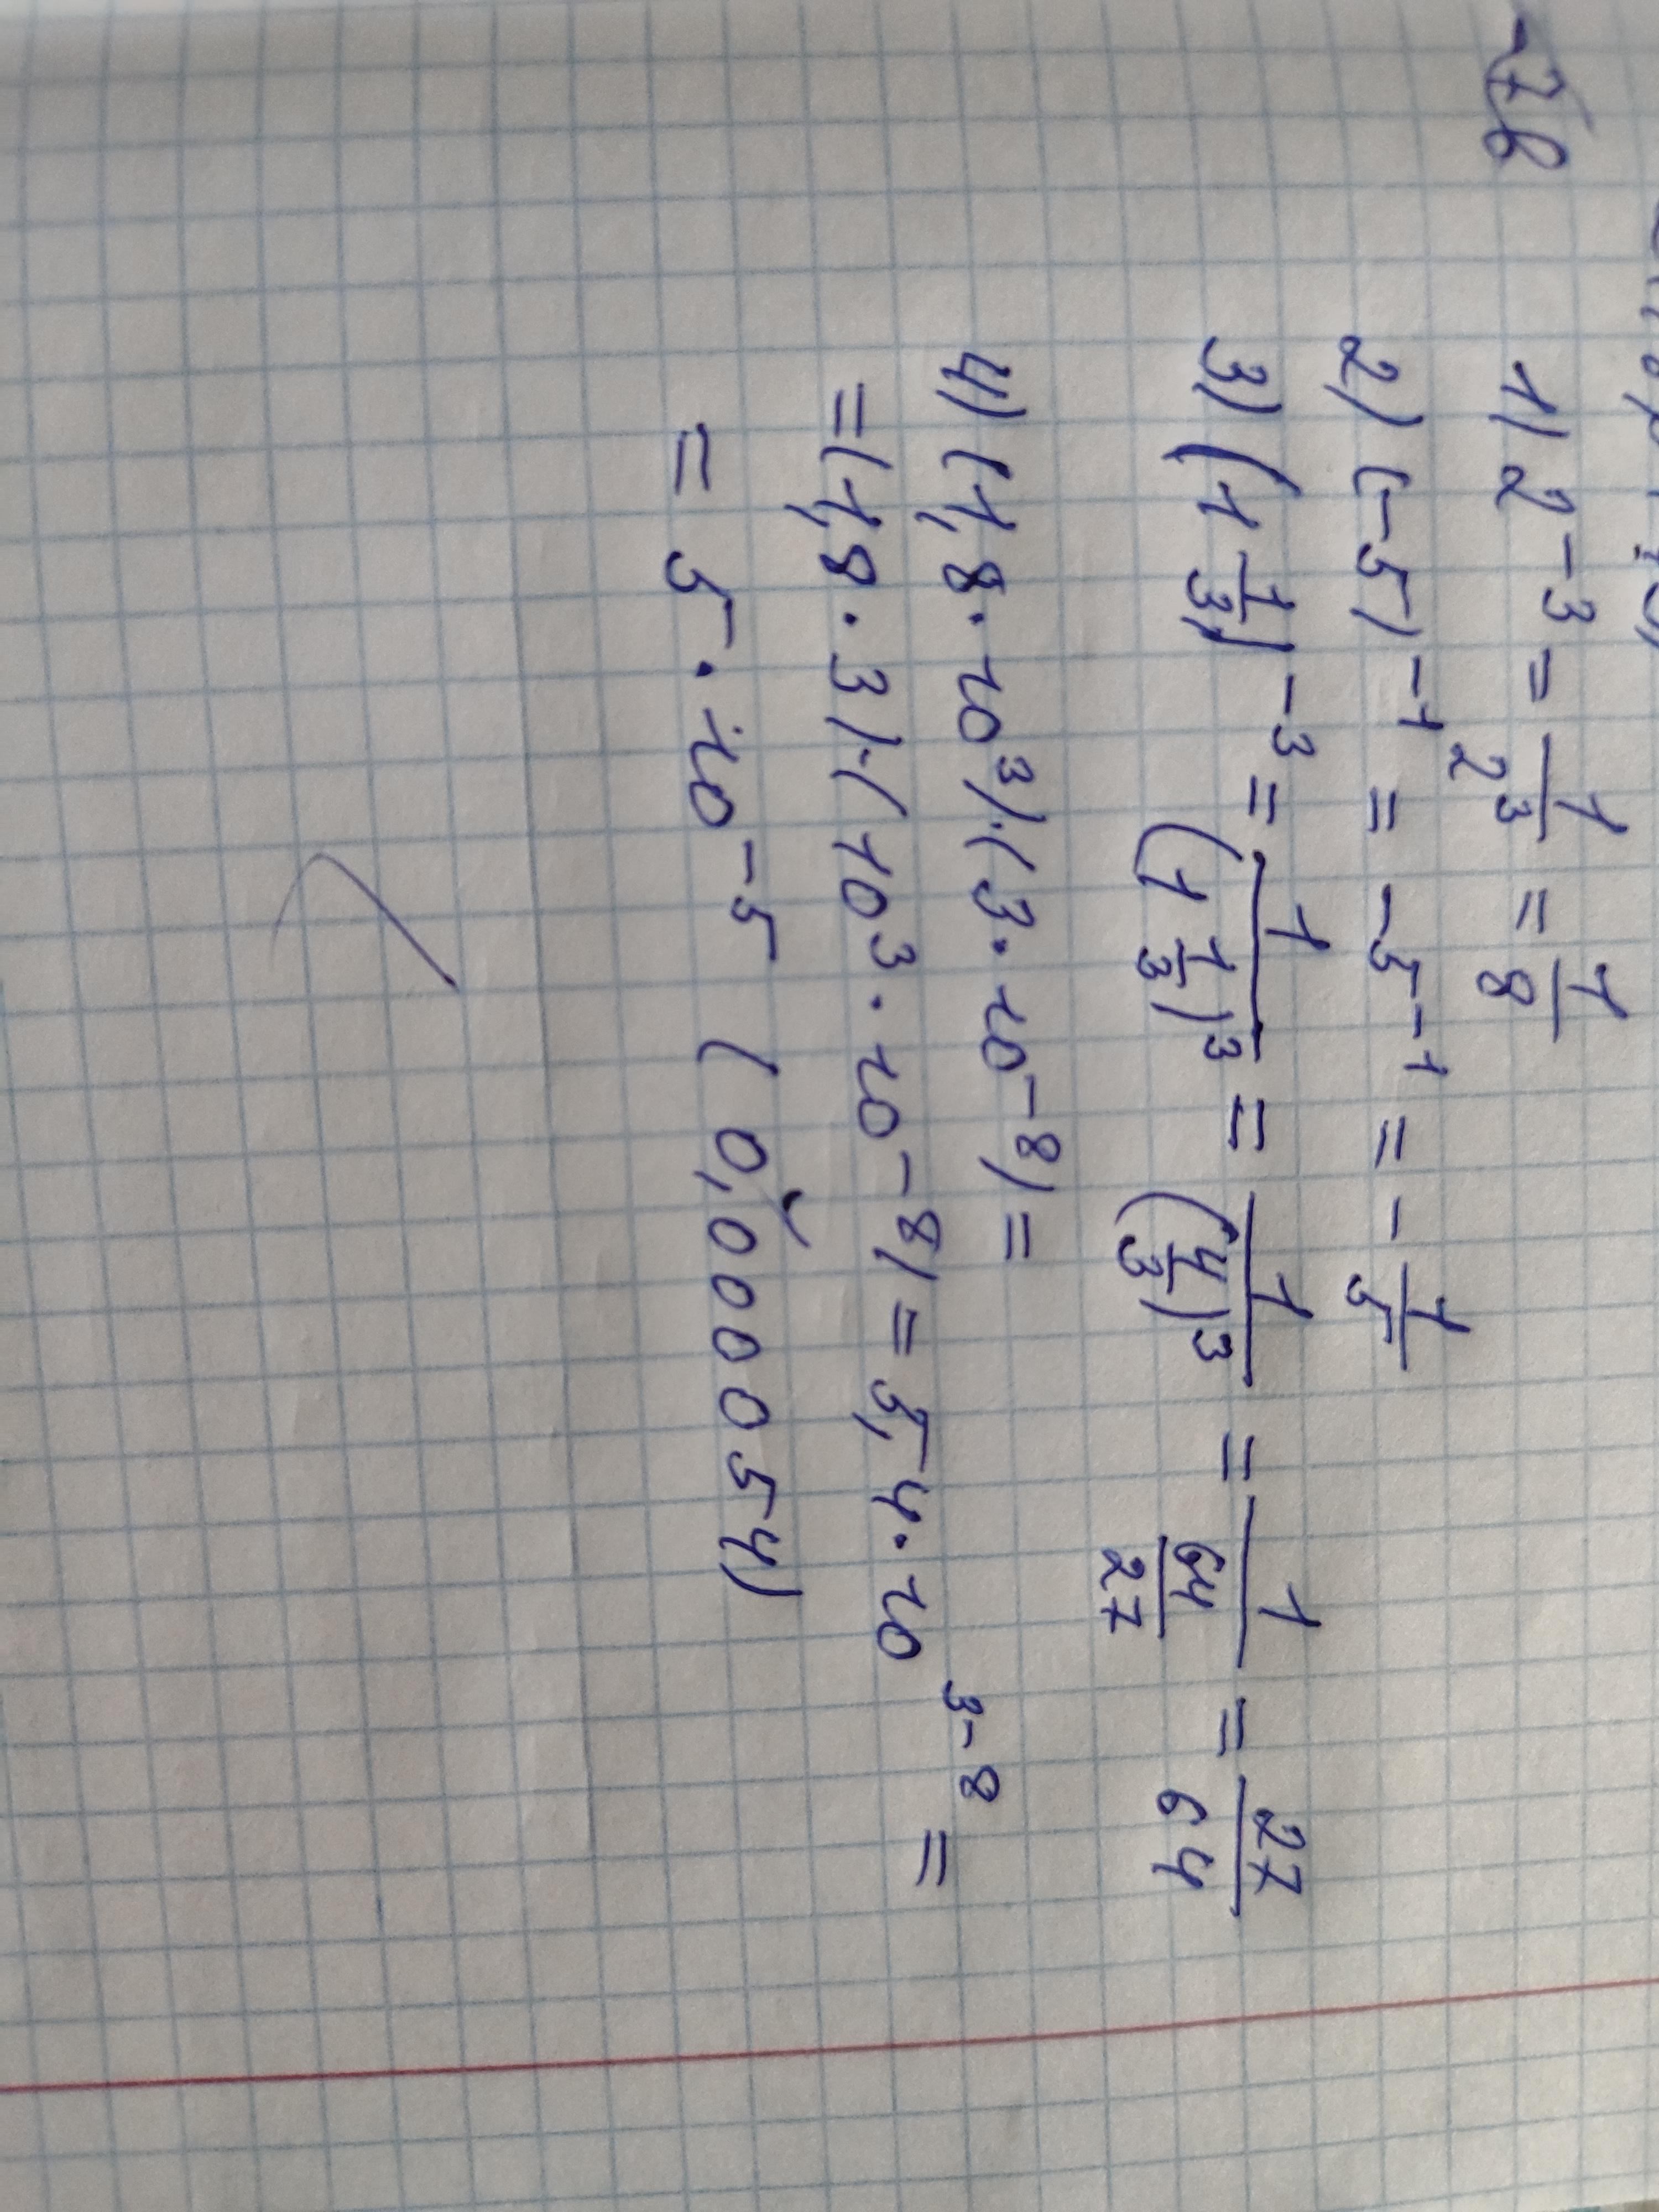 1) 2⁻³ = 1/2³ = 1/8
2) (-5)⁻¹ = -5⁻¹ = -1/5
3) (1 1/3)⁻³ = 1/(1 1/3)³ = 1/(4/3)³ = 1/(64/27) = 27/64
4) (1,8 · 10³) · (3 · 10⁻⁸) =
= (1,8 · 3) · (10³ · 10⁻⁸) = 5,4 · 10³⁻⁸ =
= 5 · 10⁻⁵ (0,000054)